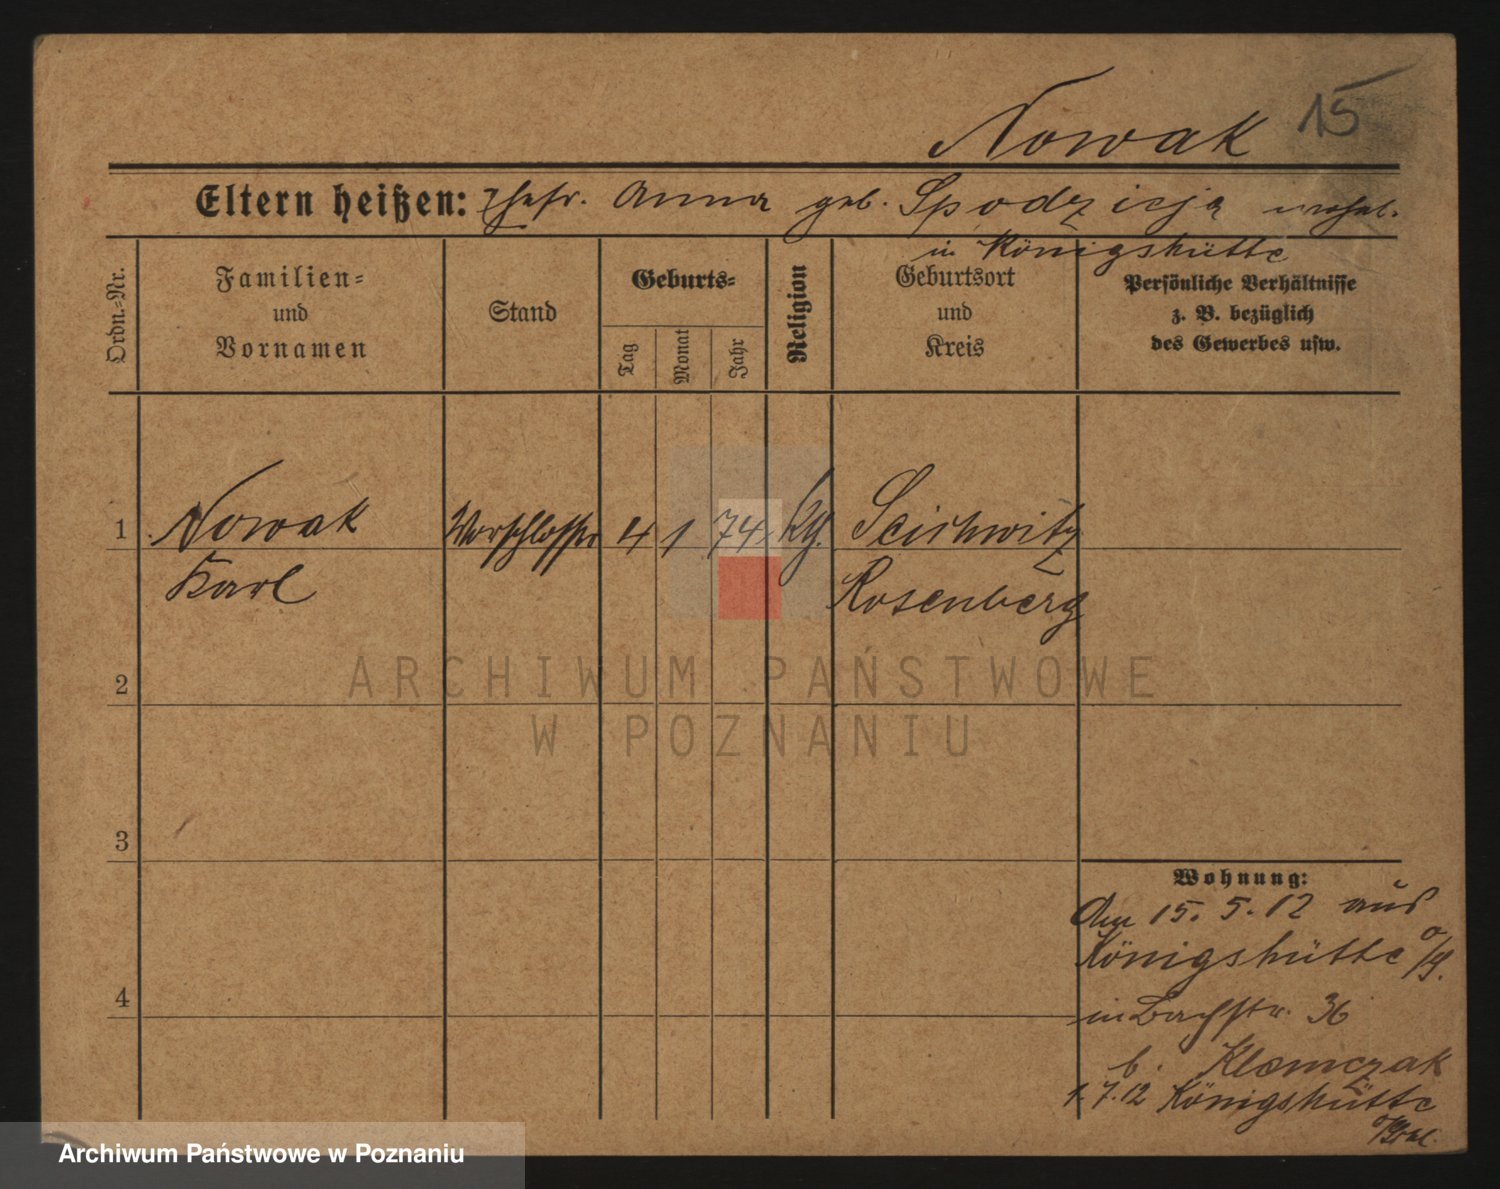 Nowak 15
Eltern heißen: Ehefr. Anna geb. Spodzieja wohnh.
in Königshütte
Ordn.-Nr.
Familien-
und
Vornamen
Stand
Geburts-
Tag
Monat
Jahr
Religion
Geburtsort
und
Kreis
Persönliche Verhältnisse
z. B. bezüglich
des Gewerbes usw.
1 Nowak Vorschlosser 4 1 74 kg. Scichwitz
Karl Rosenberg
2
3
4
Wohnung:
Am 15. 5. 12 aus
Königshütte o/S.
in Bachstr. 36
b. Klemczak
1.7.12 Königshütte
ARCHIWUM PAŃSTWOWE
W POZNANIU
Archiwum Państwowe w Poznaniu